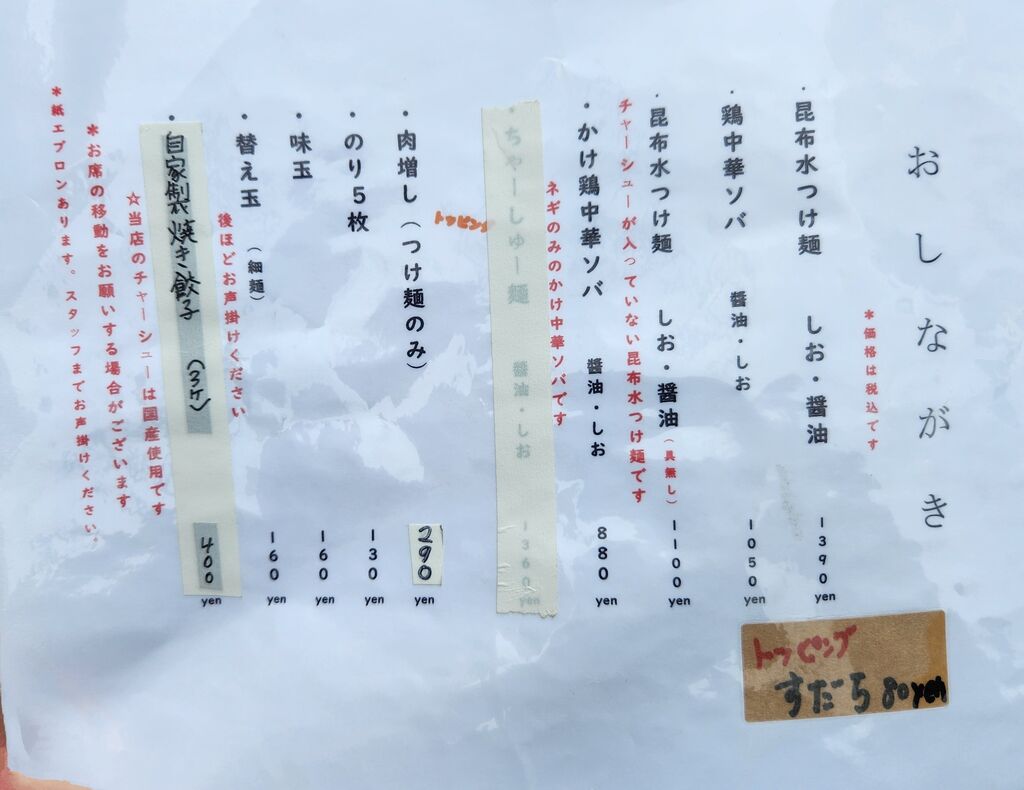 おしながき
*価格は税込です
・昆布水つけ麺 しお・醤油 1390yen
・鶏中華ソバ 醤油・しお 1050yen
・昆布水つけ麺 しお・醤油(具無し) 1100yen
チャーシューが入っていない昆布水つけ麺です
・かけ鶏中華ソバ 醤油・しお 880yen
ネギのみのかけ中華ソバです
・ちゃーしゅー麺 醤油・しお 1360yen
トッピング
・肉増し(つけ麺のみ) 290yen
・のり5枚 130yen
・味玉 160yen
・替え玉(細麺) 160yen
後ほどお声掛けください
・自家製焼き餃子(3ケ) 400yen
☆当店のチャーシューは国産使用です
*お席の移動をお願いする場合がございます
*紙エプロンあります。スタッフまでお声掛けください。
トッピング
すだち80yen